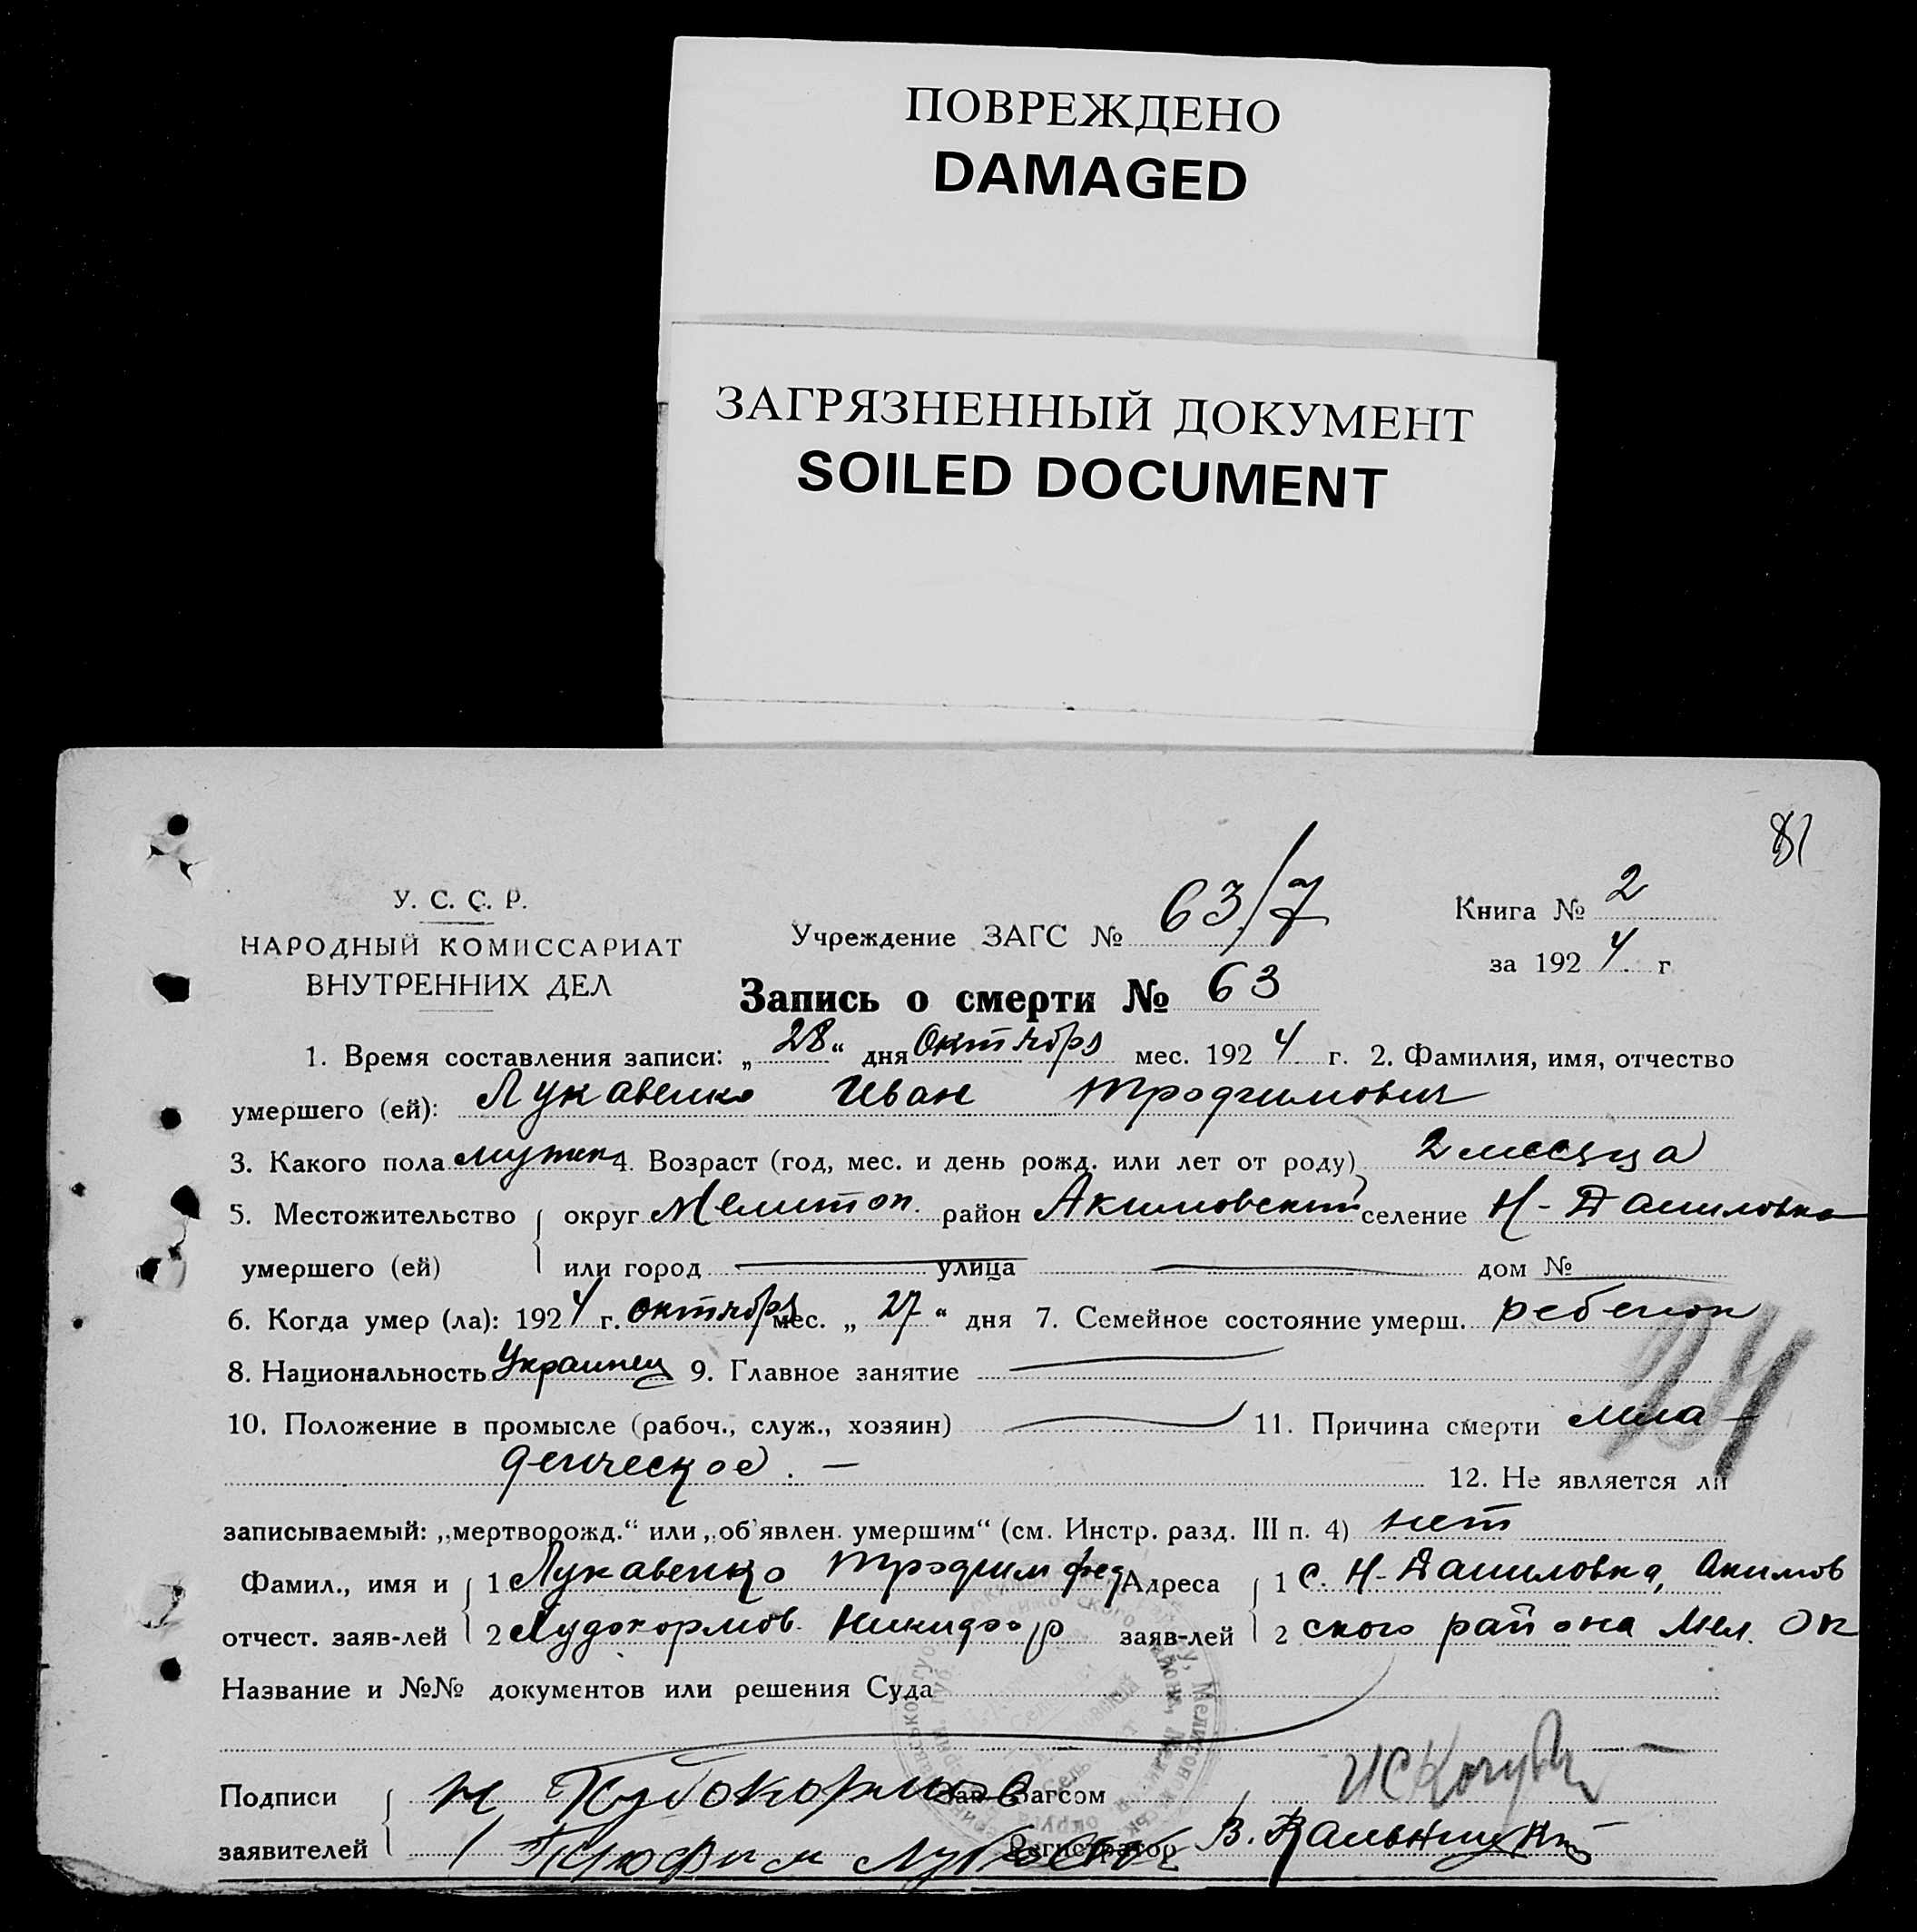 ПОВРЕЖДЕНО
DAMAGED
ЗАГРЯЗНЕННЫЙ ДОКУМЕНТ
SOILED DOCUMENT
81
У. С. С. Р.
НАРОДНЫЙ КОМИССАРИАТ
ВНУТРЕННИХ ДЕЛ
Учреждение ЗАГС № 63/7
Книга № 2
за 1924 г
Запись о смерти № 63
1. Время составления записи: „28“ дня Октября мес. 1924 г. 2. Фамилия, имя, отчество
умершего (ей): Лукавенко Иван Трофимович
3. Какого пола мужск 4. Возраст (год, мес. и день рожд. или лет от роду) 2 месяца
5. Местожительство округ Мелитоп. район Акимовский селение Н-Даниловка
умершего (ей) или город улица дом №
6. Когда умер (ла): 1924 г. октября мес. „27“ дня 7. Семейное состояние умерш. ребенок
8. Национальность Украинец 9. Главное занятие
10. Положение в промысле (рабоч., служ., хозяин) 11. Причина смерти мла-
денческое. — 12. Не является ли
записываемый: „мертворожд.“ или „об'явлен. умершим“ (см. Инстр. разд. III п. 4) нет
Фамил., имя и 1 Лукавенко Трофим фед Адреса 1 с. Н-Даниловка, Акимов
отчест. заяв-лей 2 Никифор заяв-лей 2 ского района Мел. Ок
Название и №№ документов или решения Суда
Подписи Н Зав. Загсом
заявителей Регистратор В.